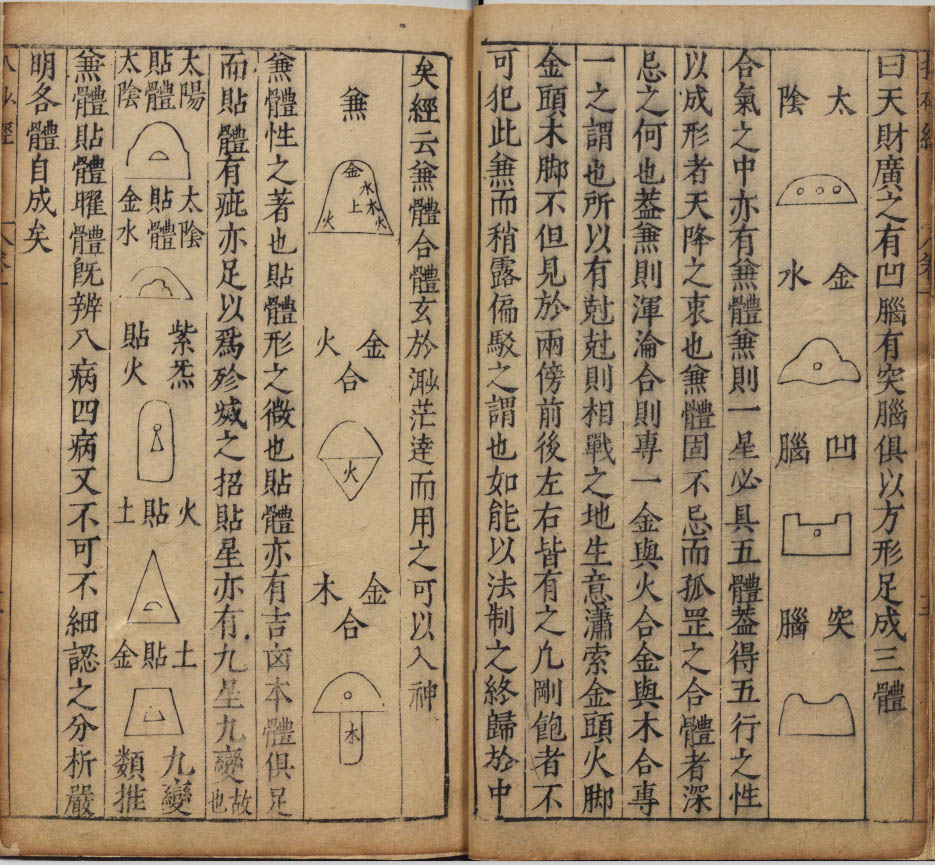 曰天財廣之有凹腦有突腦俱以方形足成三體
太陰
金水
凹腦
突腦
合氣之中亦有兼體兼則一星必具五體蓋得五行之性
以成形者天降之衷也兼體固不忌而孤罡之合體者深
忌之何也蓋兼則渾淪合則專一金與火合金與木合專
一之謂也所以有尅尅則相戰之地生意瀟索金頭火脚
金頭木脚不但見於兩傍前後左右皆有之凢剛飽者不
可犯此兼而稍露偏駁之謂也如能以法制之終歸於中
矣經云兼體合體玄於渺茫達而用之可以入神
兼
金
水
木
土
火
火
金火合
火
金木合
木
兼體性之著也貼體形之微也貼體亦有吉凶本體俱足
而貼體有疵亦足以爲殄滅之招貼星亦有九星九變故也
太陽貼體太陰
太陰貼體金水
紫炁貼火
火貼土
土貼金
九變類推
兼體貼體曜體旣辨八病四病又不可不細認之分析嚴
明各體自成矣